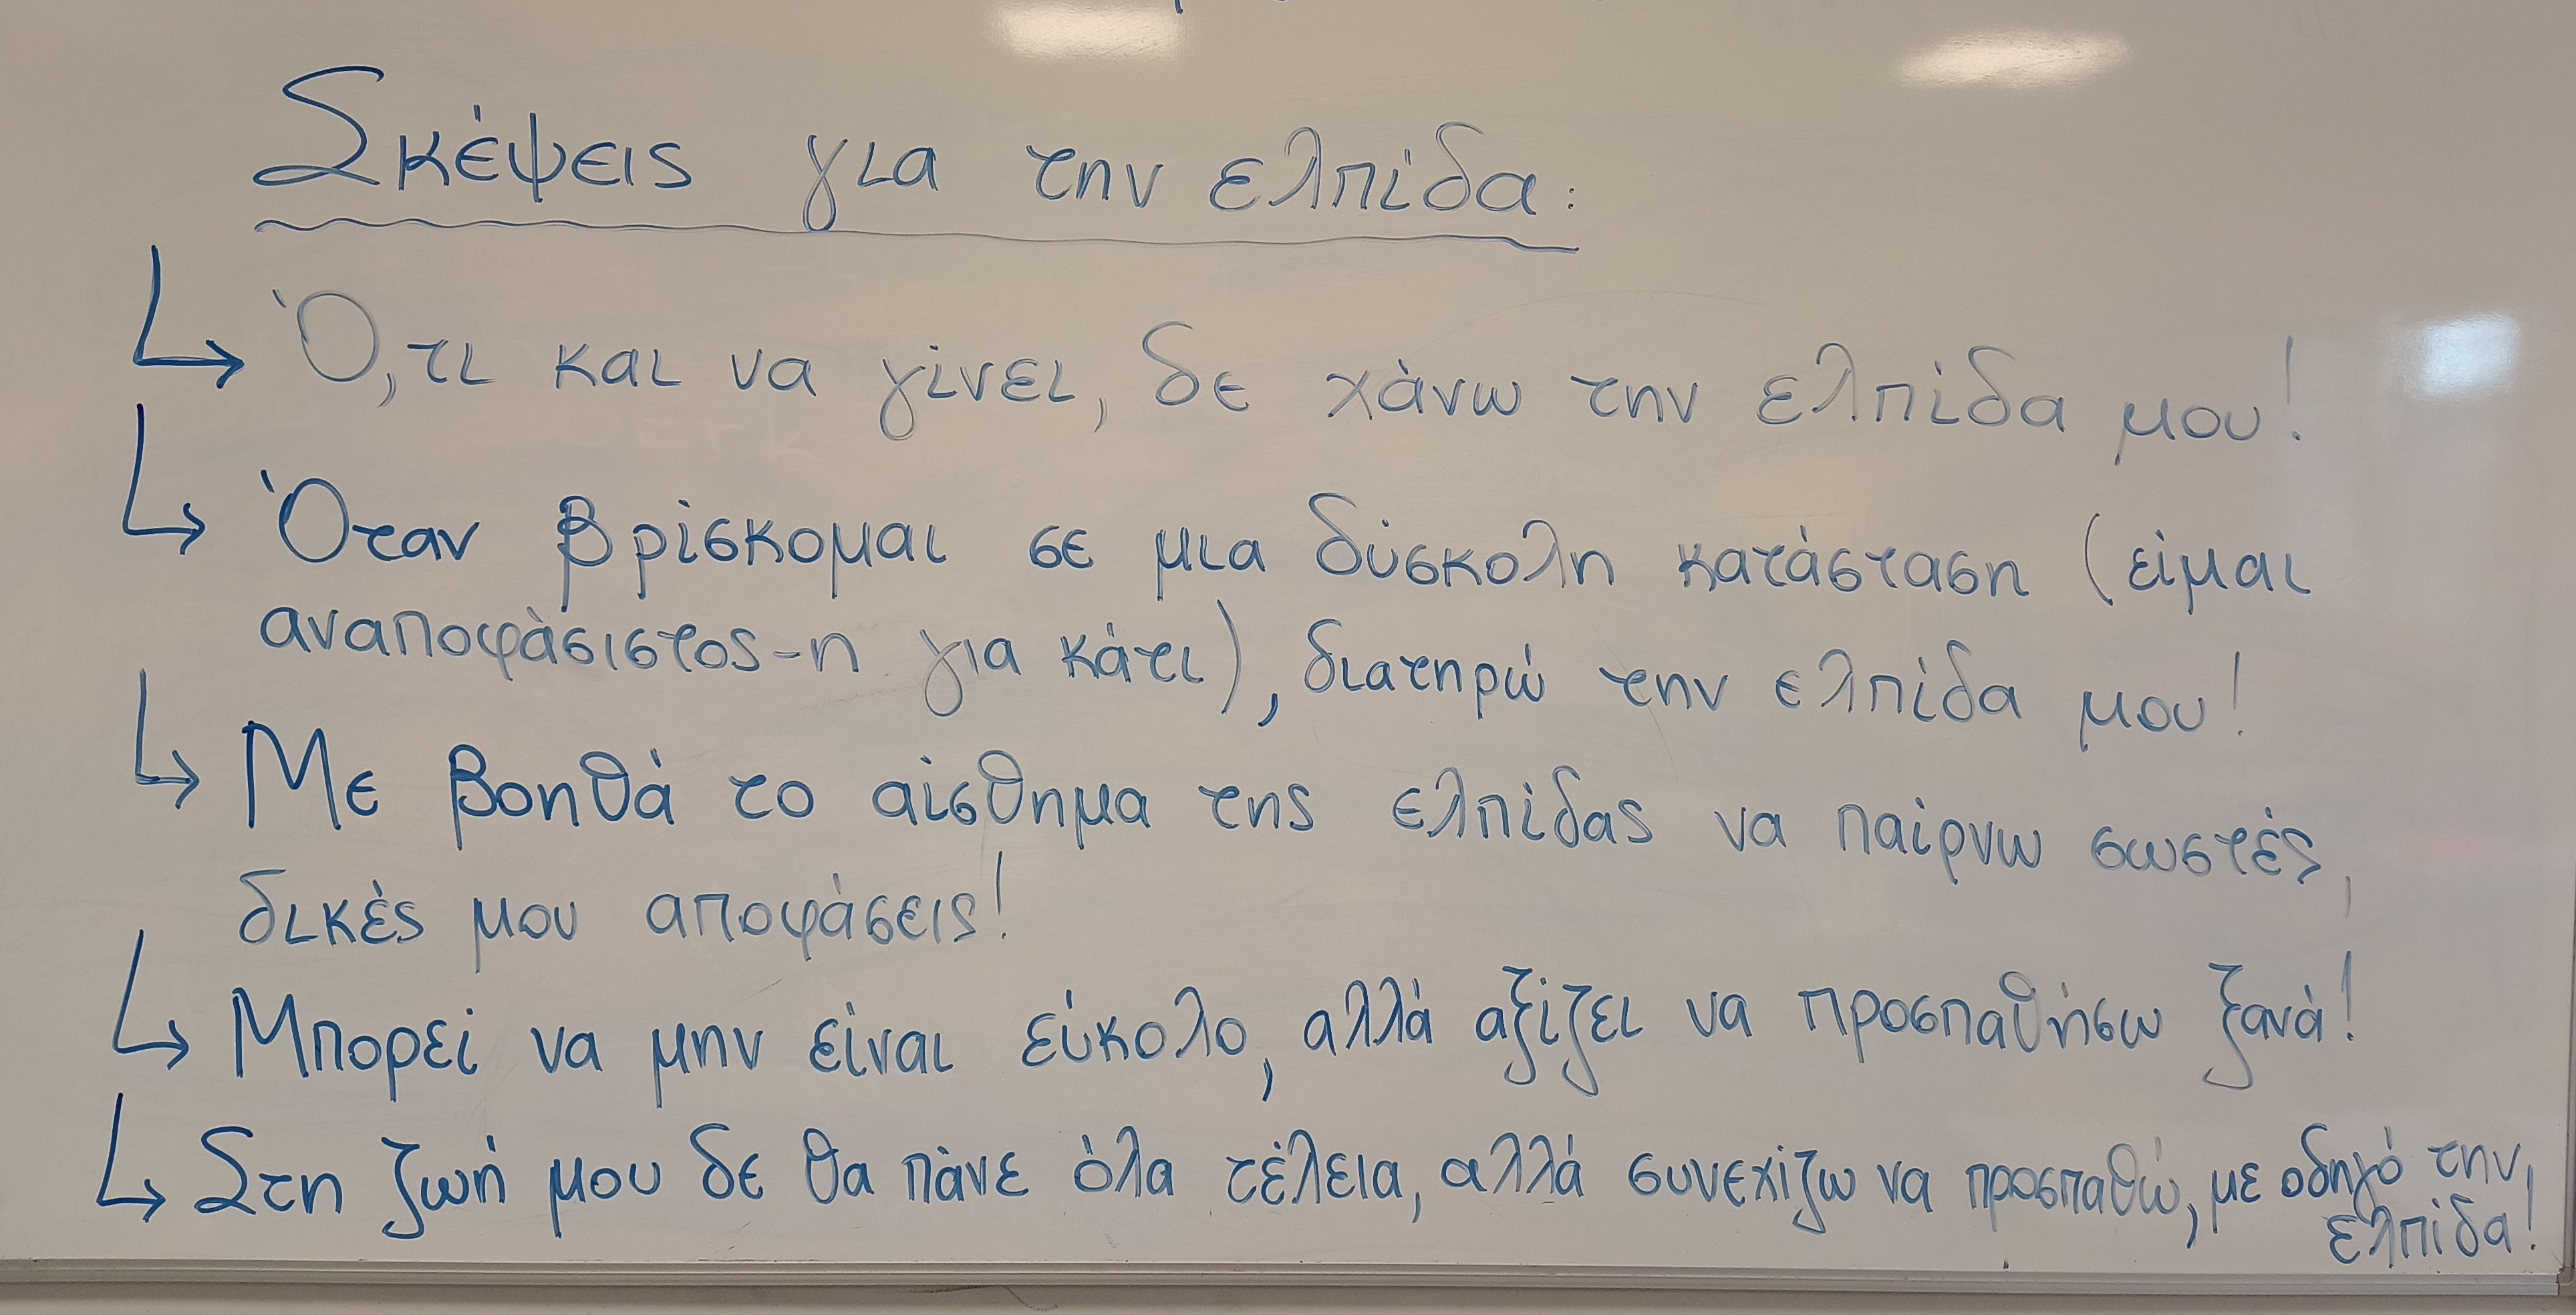 Σκέψεις για την ελπίδα:
↳ Ό,τι και να γίνει, δε χάνω την ελπίδα μου!
↳ Όταν βρίσκομαι σε μια δύσκολη κατάσταση (είμαι
αναποφάσιστος-η για κάτι), διατηρώ την ελπίδα μου!
↳ Με βοηθά το αίσθημα της ελπίδας να παίρνω σωστές,
δικές μου αποφάσεις!
↳ Μπορεί να μην είναι εύκολο, αλλά αξίζει να προσπαθήσω ξανά!
↳ Στη ζωή μου δε θα πάνε όλα τέλεια, αλλά συνεχίζω να προσπαθώ, με οδηγό την
ελπίδα!